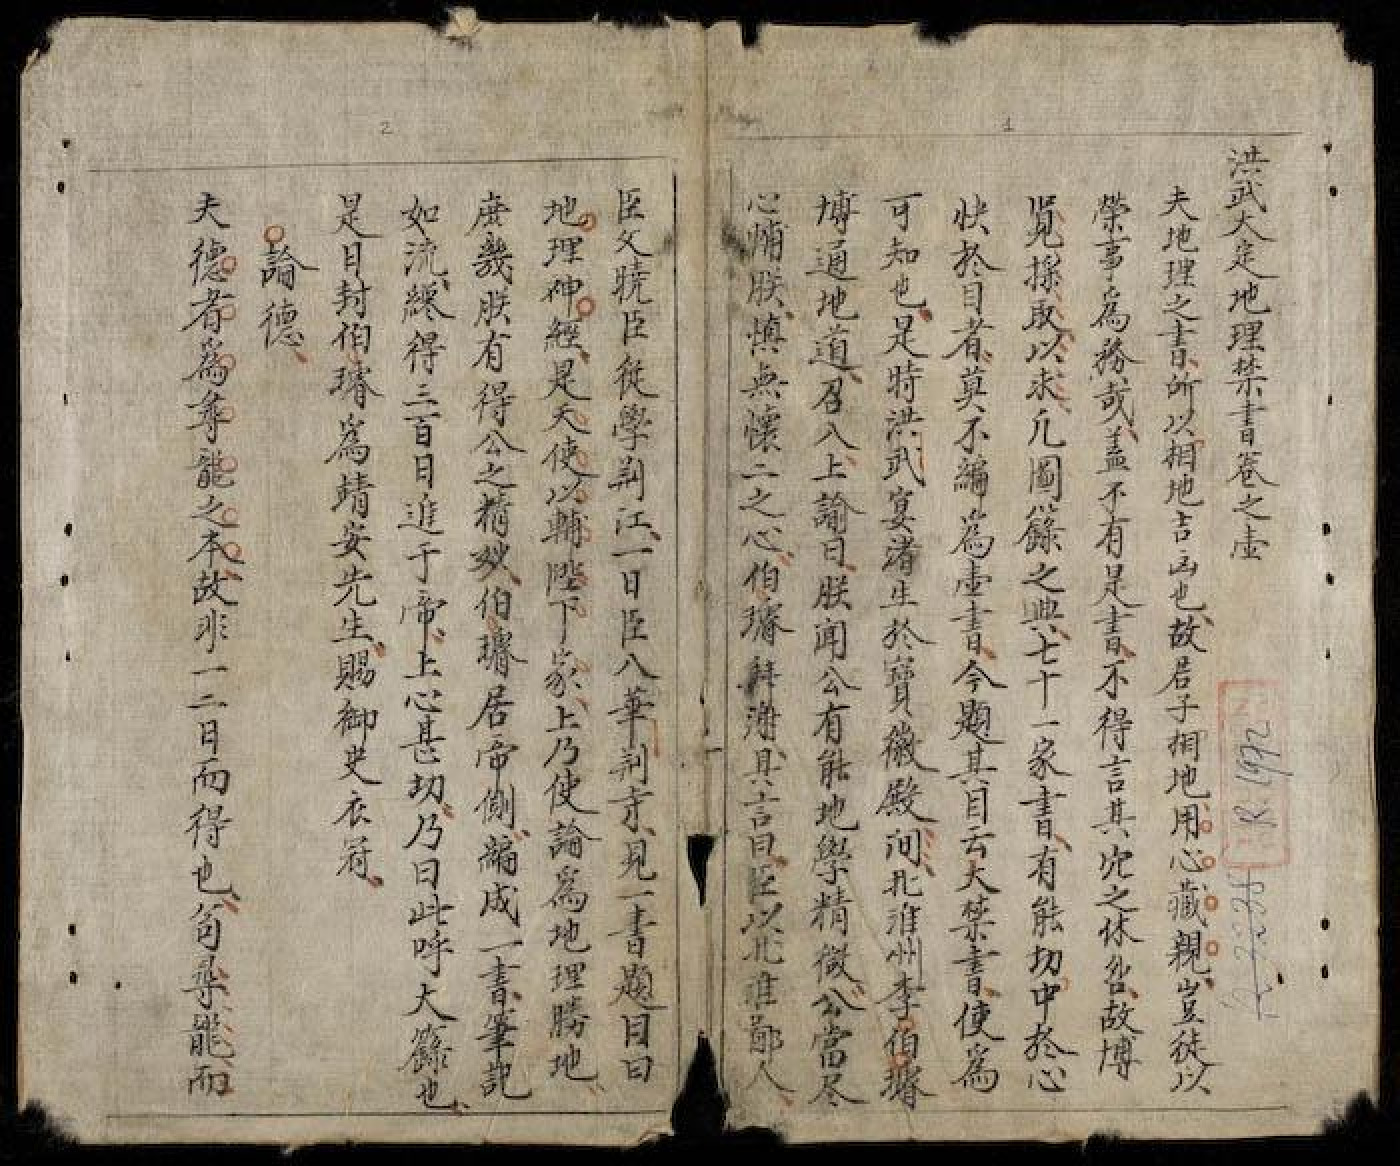 洪武大定地理禁書卷之壹
夫地理之書所以相地吉凶也故君子相地用心藏親豈徒以
榮事爲務哉盖不有是書不得言其穴之休咎故博
覽採取以求凡圖籙之典七十一家書有能切中於心
快於目者莫不編爲壹書今題其目云大禁書使爲
可知也是時洪武宴渚生於寶徽殿洞北淮州李伯璿
博通地道召入上諭曰朕聞公有能地學精微公當尽
心備朕慎無懷二之心伯璿拜谢其言曰臣以北淮鄙人
臣父曉臣従學荆江一日臣入華荆寺見一書題目曰
地理神經是天使以輔陛下家上乃使論爲地理勝地
庶幾朕有得公之精妙伯璿居帝側編成一書筆記
如流纔得三百日進于帝上心甚切乃曰此呼大籙也
是日封伯璿爲靖安先生賜御史衣冠
論德
夫德者爲尋龍之本故非一二日而得也苟尋龍而
1
2
R 1992